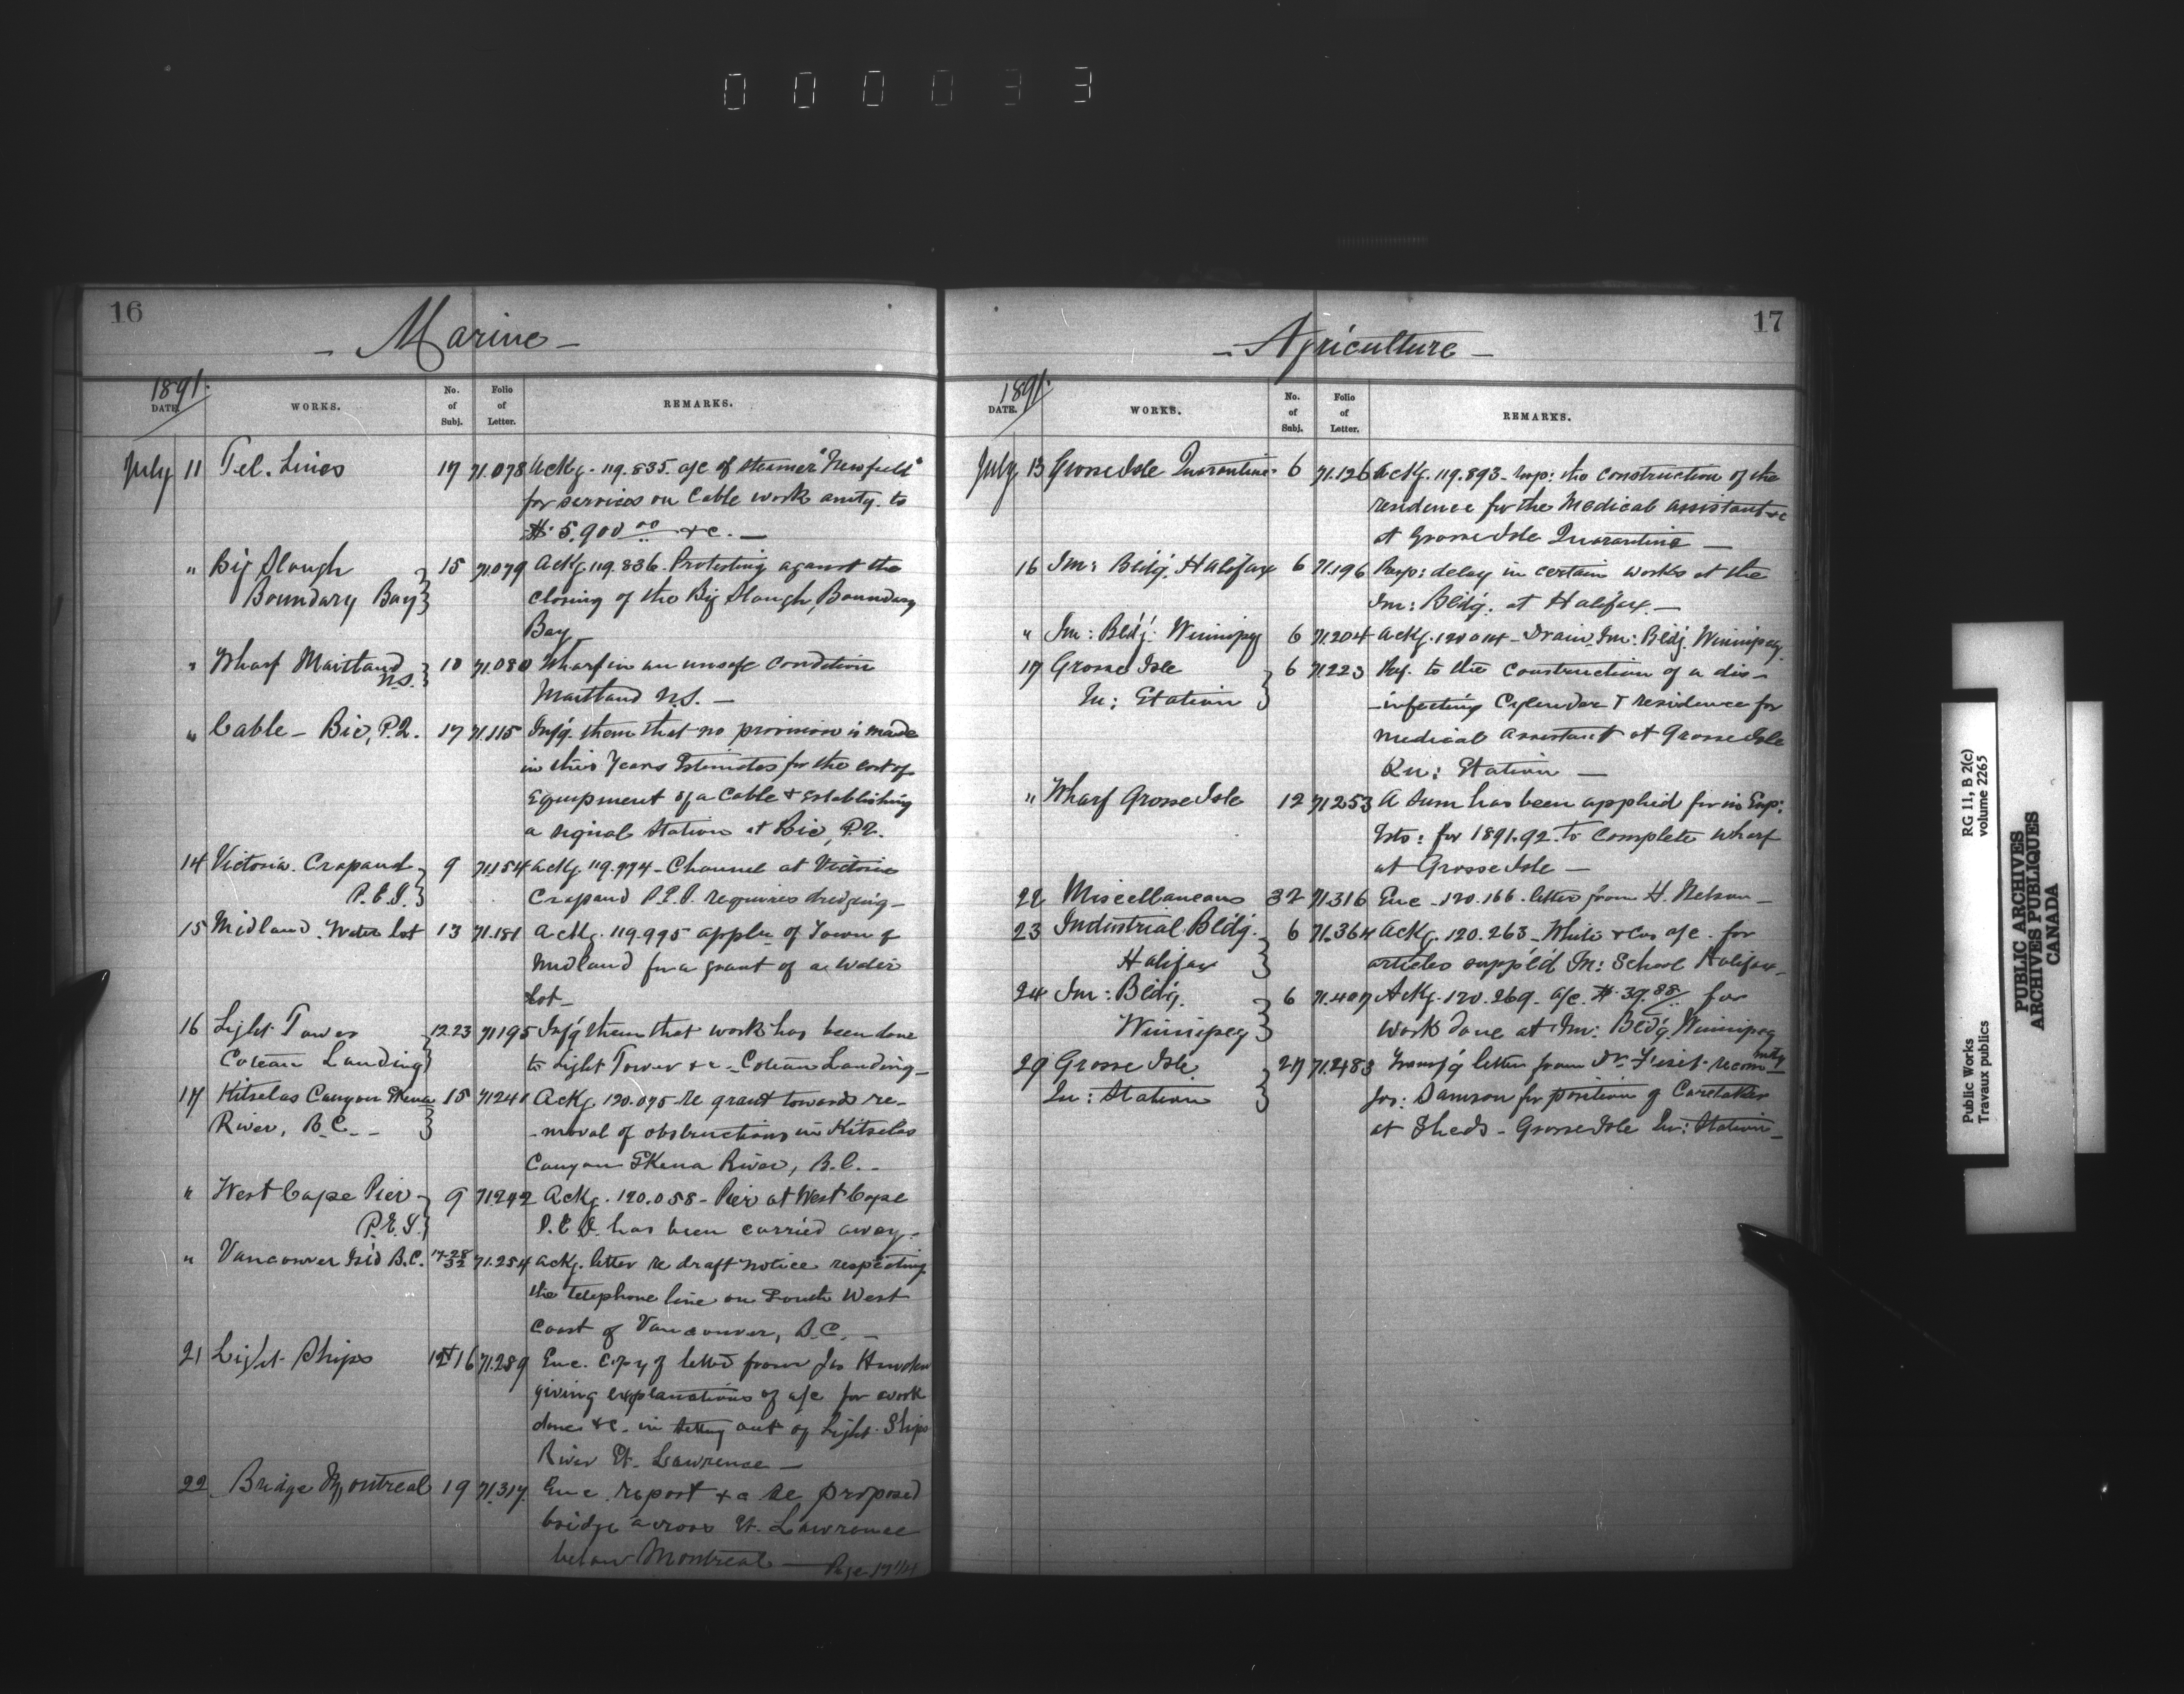 000033
16
- Marine -
1891.
DATE. WORKS. No. of Subj. Folio of Letter. REMARKS.
July 11 Tel. Lines 17 71.078 Ackg. 119.835. a/c of steamer "Newfield"
for services on Cable work amtg. to
$5,900.00 &c. —
" Big Slough 15 71.079 Ackg. 119.836. Protesting against the
Boundary Bay closing of the Big Slough, Boundary
Bay
" Wharf Maitland 10 71.080 Wharf in an unsafe condition
N.S. Maitland N.S. —
" Cable - Bic, P.Q. 17 71.115 Inf'g. them that no provision is made
in this Years Estimates for the cost of
Equipment of a Cable & Establishing
a signal Station at Bic, P.Q.
14 Victoria Crapaud 9 71.154 Ackg. 119.974 - Channel at Victoria
P.E.I. Crapaud P.E.I. requires dredging -
15 Midland Water lot 13 71.181 Ackg. 119.995 appln of Town of
Midland for a grant of a Water
lot -
16 Light Tower 12.23 71195 Inf'g them that work has been done
Coteau Landing to Light Tower &c - Coteau Landing -
17 Kitselas Canyon Skena 15 71241 Ackg. 120.075 - re grant towards re-
River, B.C. - -moval of obstructions in Kitselas
Canyon Skena River, B.C. -
" West Cape Pier 9 71.242 Ackg. 120.058 - Pier at West Cape
P.E.I. P.E.I. has been carried away -
" Vancouver Isl'd B.C. 17-28 32 71.254 Ackg. letter re draft notice respecting
the telephone line on South West
Coast of Vancouver, B.C. -
21 Light Ships 12 & 16 71.289 Enc. Copy of letter from Jas
giving explanations of a/c for work
done &c. in setting out of Light Ships
River St. Lawrence —
22 Bridge Montreal 19 71.317. Enc. report &c re proposed
bridge across St. Lawrence
below Montreal — Page
17
- Agriculture -
1891.
DATE. WORKS. No. of Subj. Folio of Letter. REMARKS.
July 13 Grosse Isle Quarantine 6 71.126 Ackg. 119.893 - resp: the construction of the
residence for the Medical assistant &c
at Grosse Isle Quarantine —
16 Im: Bldg. Halifax 6 71.196 Resp: delay in certain works at the
Im: Bldg. at Halifax. —
" Im: Bldg. Winnipeg 6 71.204 Ackg. - Drain Im: Bldg Winnipeg.
17 Grosse Isle 6 71223 Ref. to the construction of a dis-
Qu: Station -infecting Cylinder & residence for
Medical Assistant at Grosse Isle
Qu: Station —
" Wharf Grosse Isle 12 71253 A sum has been applied for in Sup:
Ests: for 1891.92. to complete wharf
at Grosse Isle —
22 Miscellaneous 32 71.316 Enc - 120.166. letter from H. Nelson -
23 Industrial Bldg. 6 71.364 Ackg. 120.263 - White & Cos a/c. for
Halifax articles suppl'd In: School Halifax -
24 Im: Bldg. 6 71.407 Ackg. 120.269. a/c. $39.88 for
Winnipeg work done at Im: Bld'g Winnipeg
29 Grosse Isle 27 71.2483 Transf'g letter from Dr. Fiset - recommdg
Qu: Station Jos: Samson for position of Caretaker
at Sheds - Grosse Isle Qu: Station -
Public Works
Travaux publics
RG 11, B 2(c)
volume 2265
PUBLIC ARCHIVES
ARCHIVES PUBLIQUES
CANADA